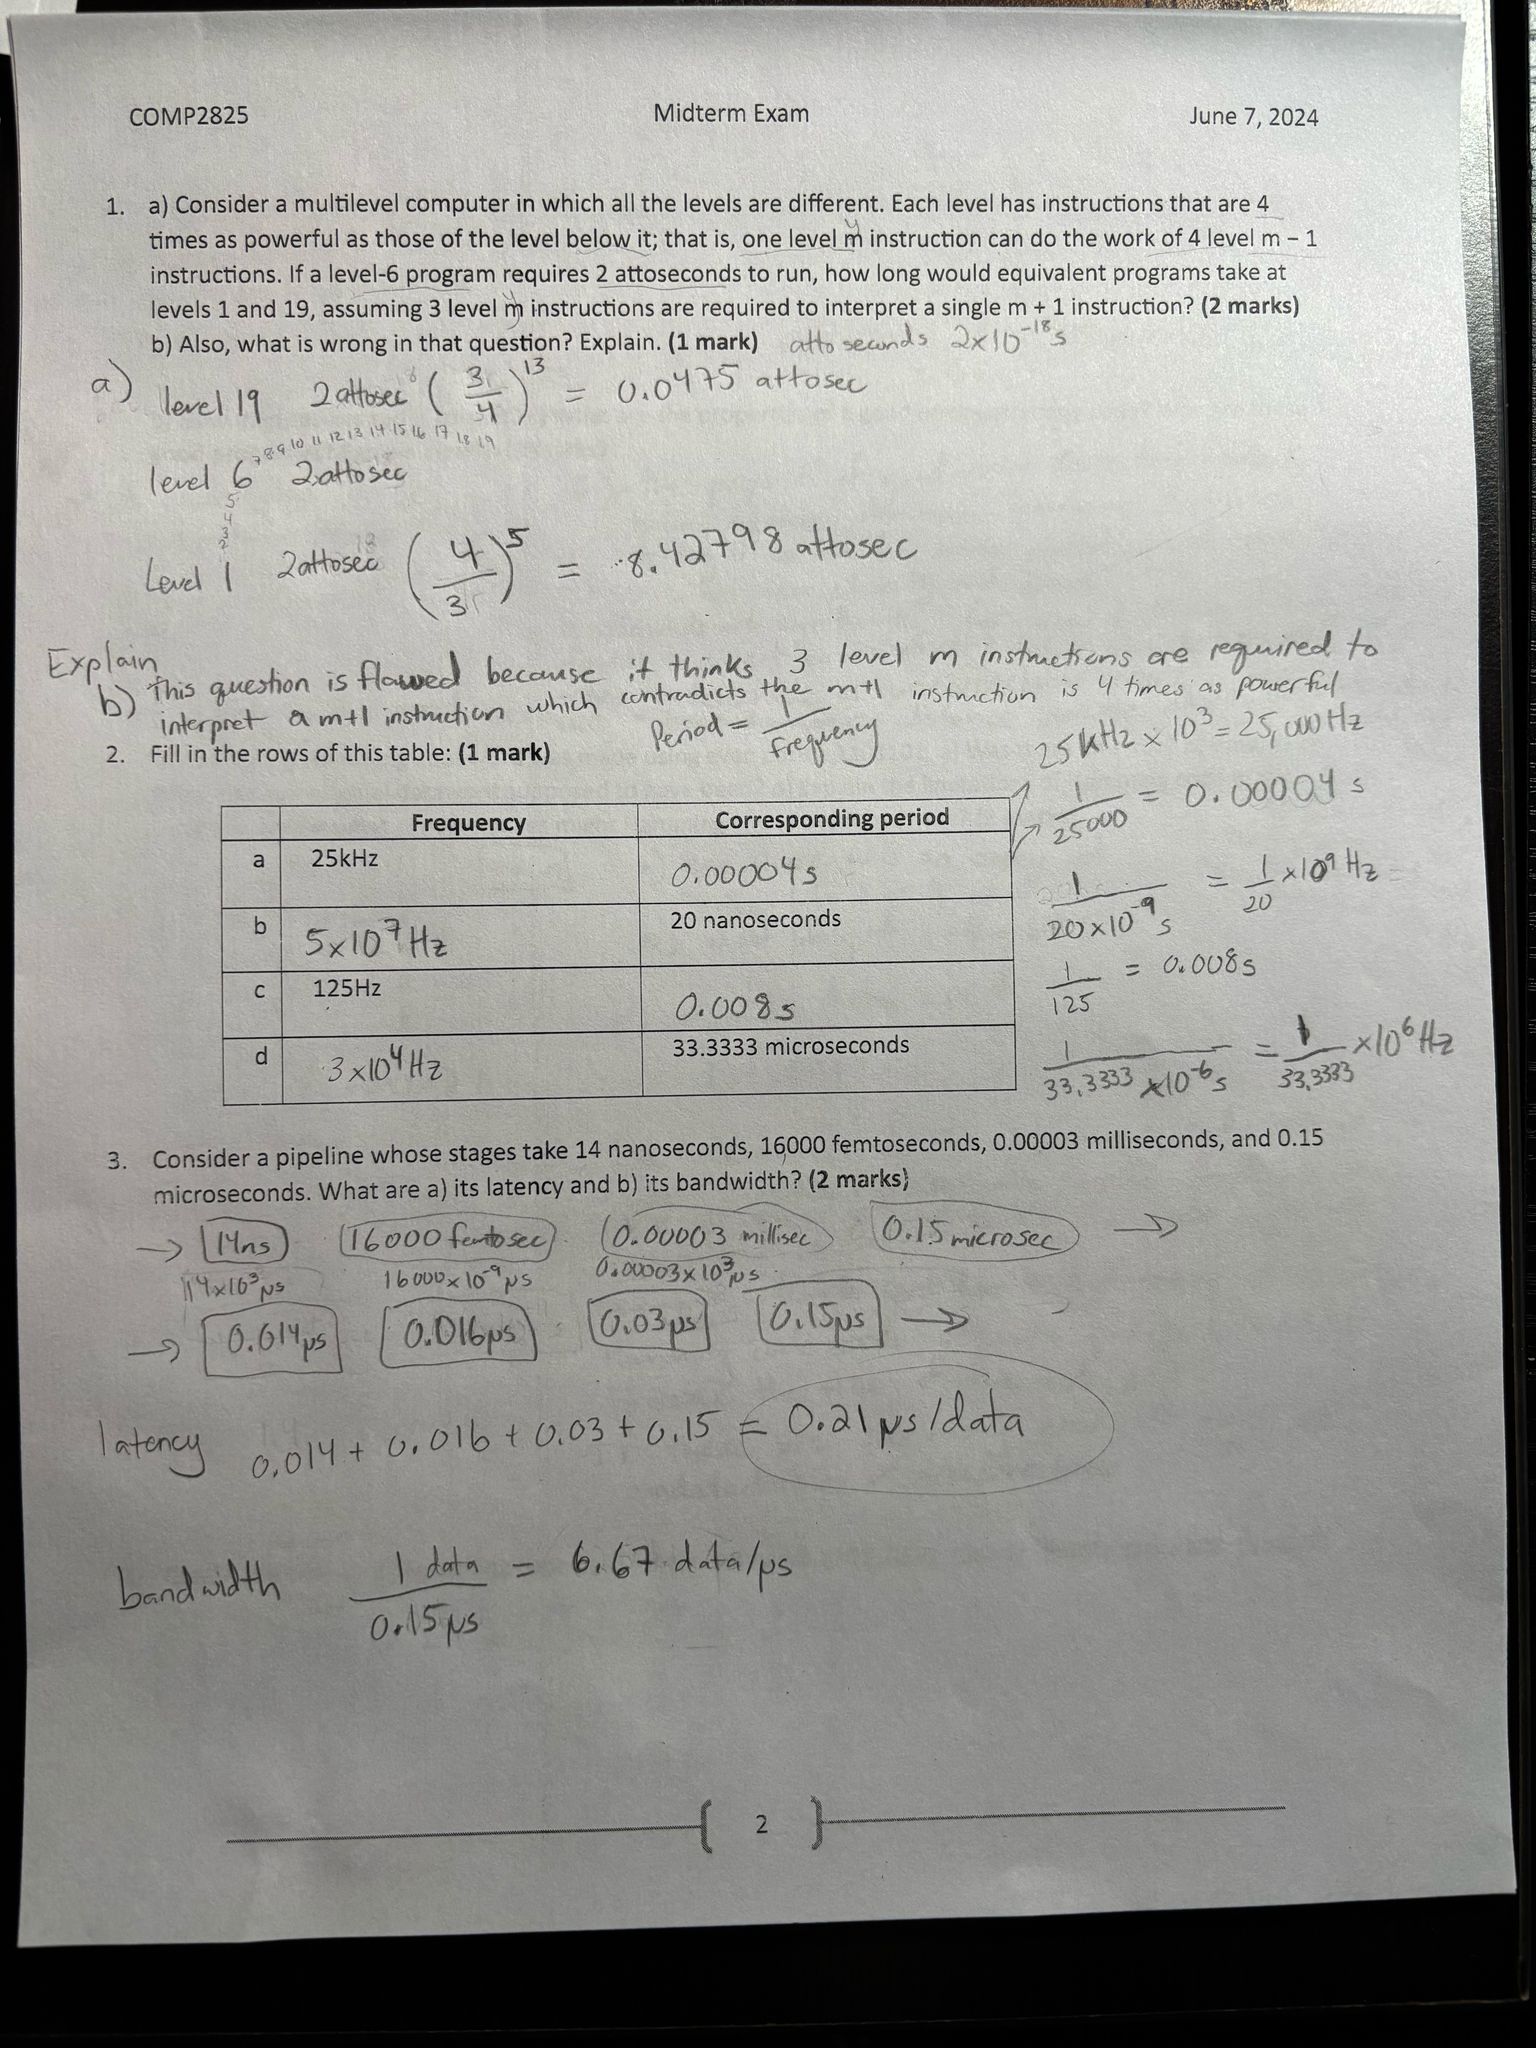 COMP2825 Midterm Exam June 7, 2024
1. a) Consider a multilevel computer in which all the levels are different. Each level has instructions that are 4
times as powerful as those of the level below it; that is, one level m instruction can do the work of 4 level m – 1
instructions. If a level-6 program requires 2 attoseconds to run, how long would equivalent programs take at
levels 1 and 19, assuming 3 level m instructions are required to interpret a single m + 1 instruction? (2 marks)
b) Also, what is wrong in that question? Explain. (1 mark) atto seconds 2x10^-18 s
a) level 19 2 attosec (3/4)^13 = 0.0475 attosec
7 8 9 10 11 12 13 14 15 16 17 18 19
level 6 2 attosec
5
4
3
2
Level 1 2 attosec (4/3)^5 = 8.42798 attosec
Explain
b) This question is flawed because it thinks 3 level m instructions are required to
interpret a m+1 instruction which contradicts the m+1 instruction is 4 times as powerful
Period = 1/frequency
2. Fill in the rows of this table: (1 mark)
25kHz x 10^3 = 25,000Hz
1/25000 = 0.00004 s
Frequency Corresponding period
a 25kHz 0.00004s
1/20x10^-9 s = 1/20 x10^9 Hz
b 5x10^7 Hz 20 nanoseconds
1/125 = 0.008s
c 125Hz 0.008s
d 3x10^4 Hz 33.3333 microseconds
1/33.3333 x10^-6 s = 1/33.3333 x10^6 Hz
3. Consider a pipeline whose stages take 14 nanoseconds, 16000 femtoseconds, 0.00003 milliseconds, and 0.15
microseconds. What are a) its latency and b) its bandwidth? (2 marks)
→ 14ns 16000 femtosec 0.00003 millisec 0.15 microsec →
14x10^3 μs 16000x10^-9 μs 0.00003x10^3 μs
→ 0.014μs 0.016μs 0.03μs 0.15μs →
latency 0.014 + 0.016 + 0.03 + 0.15 = 0.21 μs/data
bandwidth 1 data/0.15μs = 6.67 data/μs
2